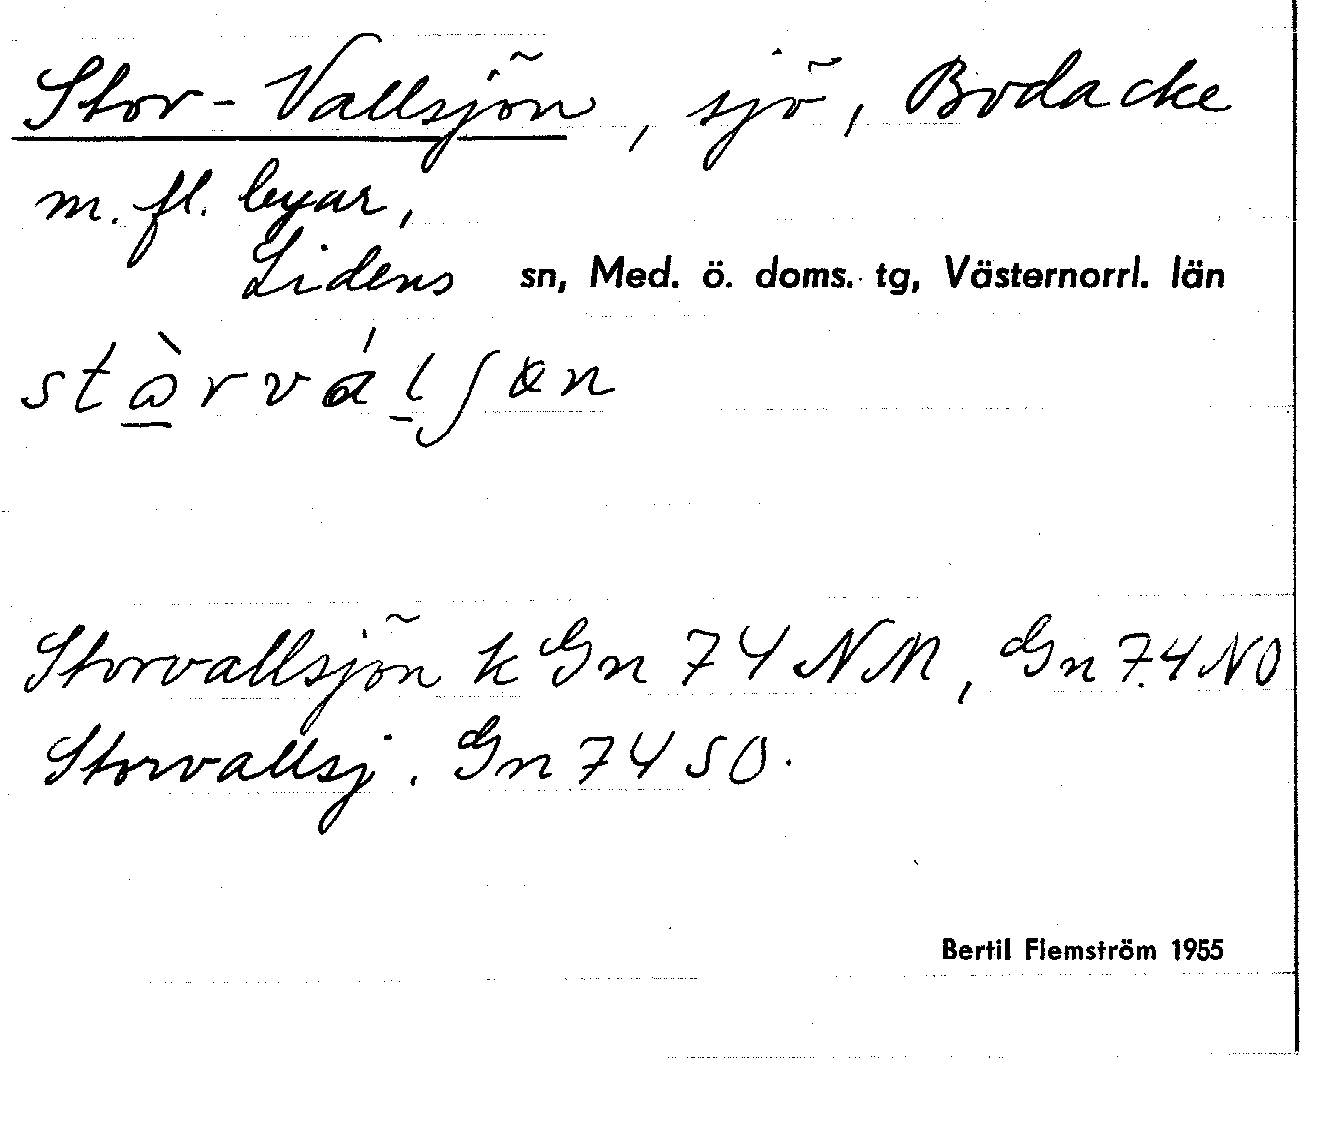 Stor-Vallsjön, sjö, Bodacke
m. fl. byar,
Lidens sn, Med. ö. doms. tg, Västernorrl. län
Storvallsjön k Gn 74 NM, Gn 74 NO
Storvallsj. Gn 74 SO.
Bertil Flemström 1955